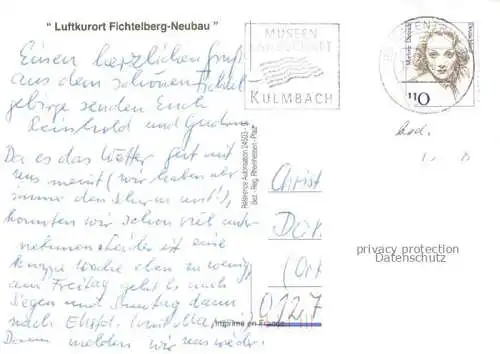 " Luftkurort Fichtelberg-Neubau "
MUSEEN
LANDSCHAFT
KULMBACH
Marlene Dietrich
110
Einen herzlichen Gruß
aus dem schönen Fichtel
gebirge senden Euch
Reinhold und Gudrun
Da es das Wetter gut mit
uns meint (wir haben aber
immer den Schirm mit!),
konnten wir schon viel unter-
nehmen. Leider ist eine
kurze Woche eben zu wenig,
am Freitag geht es nach
und Sonntag dann
nach
Dann melden wir uns wieder.
Bild - Reg. Rheinhessen - Pfalz
Christ
(Ort
9127
Imprimé en France
privacy protection
Datenschutz